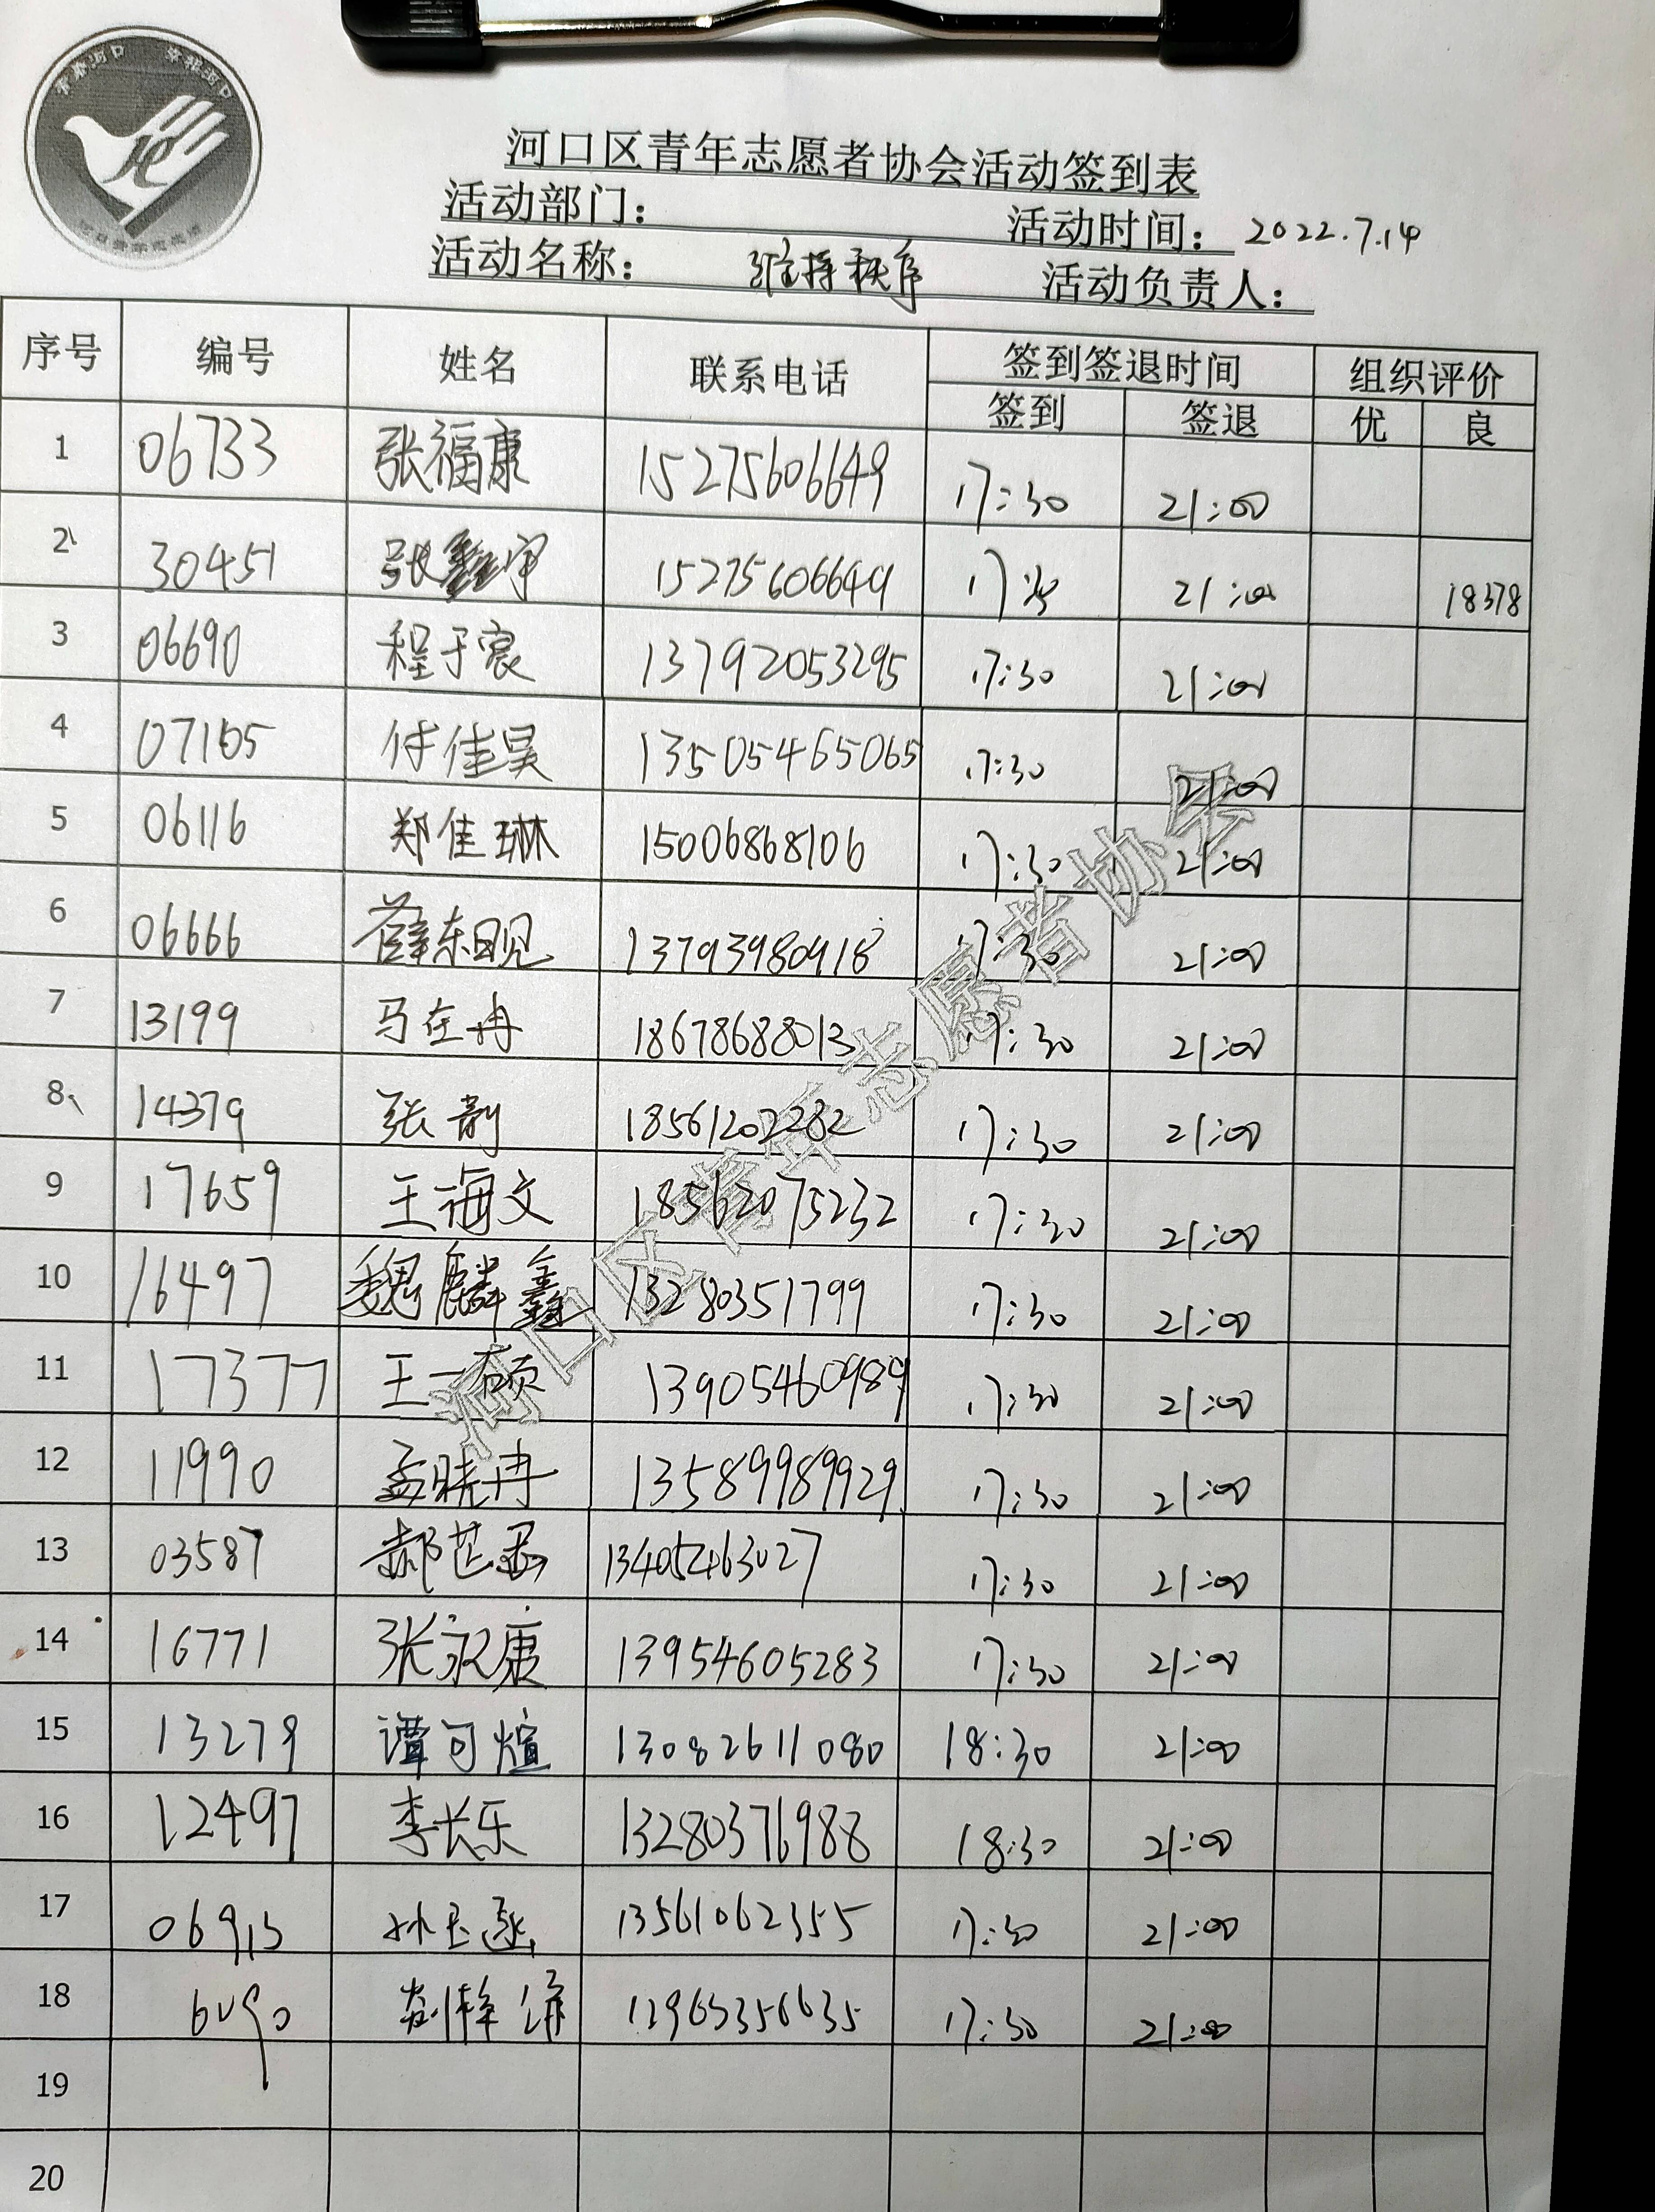 青春河口 幸福河口
河口区青年志愿者协会活动签到表
活动部门： 活动时间：2022.7.14
活动名称： 维持秩序 活动负责人：
序号 编号 姓名 联系电话 签到签退时间 组织评价
签到 签退 优 良
1 06733 张福康 15275606649 17:30 21:00
2 30451 张鑫宇 15275606649 21:00 18378
3 06690 程子宸 13792053295 17:30 21:00
4 07165 付佳昊 13505465065 17:30 21:00
5 06116 郑佳琳 15006868106 17:30 21:00
6 06666 薛东 13793980918 17:30 21:00
7 13199 马在冉 18678688013 17:30 21:00
8 14379 张韵 18561202282 17:30 21:00
9 17659 王海文 18562075232 17:30 21:00
10 16497 魏麟鑫 13280351799 17:30 21:00
11 17377 王一硕 13905460989 17:30 21:00
12 11990 孟晓冉 13589989929 17:30 21:00
13 03587 郝芷 13405463027 17:30 21:00
14 16771 张永康 13954605283 17:30 21:00
15 13279 谭可煊 13082611080 18:30 21:00
16 12497 李长乐 13280371988 18:30 21:00
17 06913 孙玉 13561062355 17:30 21:00
18 17:30 21:00
19
20
河口区青年志愿者协会